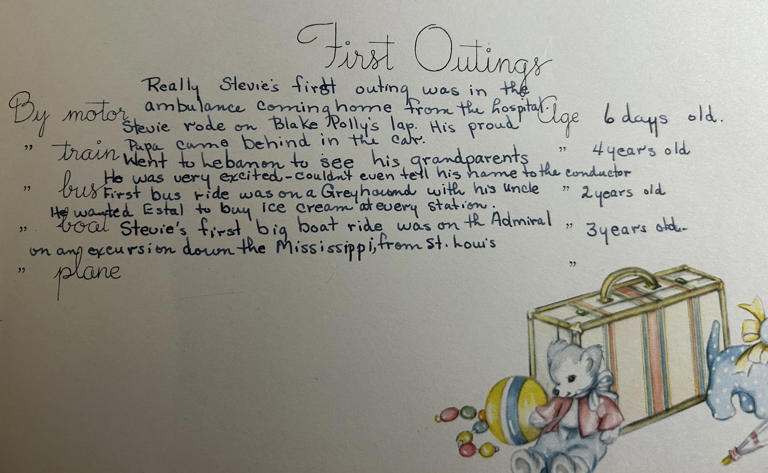 First Outings
Really Stevie's first outing was in the
By motor ambulance coming home from the hospital. Age 6 days old.
Stevie rode on Blake Polly's lap. His proud
Papa came behind in the car.
" train Went to Lebanon to see his grandparents " 4 years old
He was very excited-couldn't even tell his name to the conductor
" bus First bus ride was on a Greyhound with his Uncle " 2 years old
He wanted Estal to buy ice cream at every station.
" boat Stevie's first big boat ride was on th Admiral " 3 years old-
on an excursion down the Mississippi, from St. Louis
" plane "